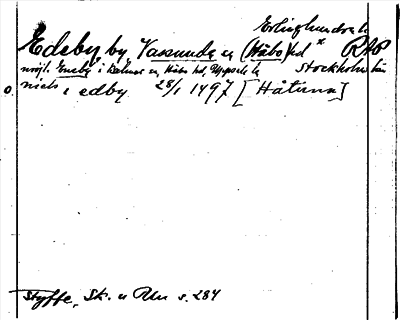 Erlinghundra hd
Edeby by, Vassunda sn (Håbo) hd * RAP
möjl. Eneby i Kalmar sn, Håbo hd, Uppsala lä Stockholms län
niels i edby 28/1 1497 [Håtuna]
Styffe, Sk. u Un s. 284